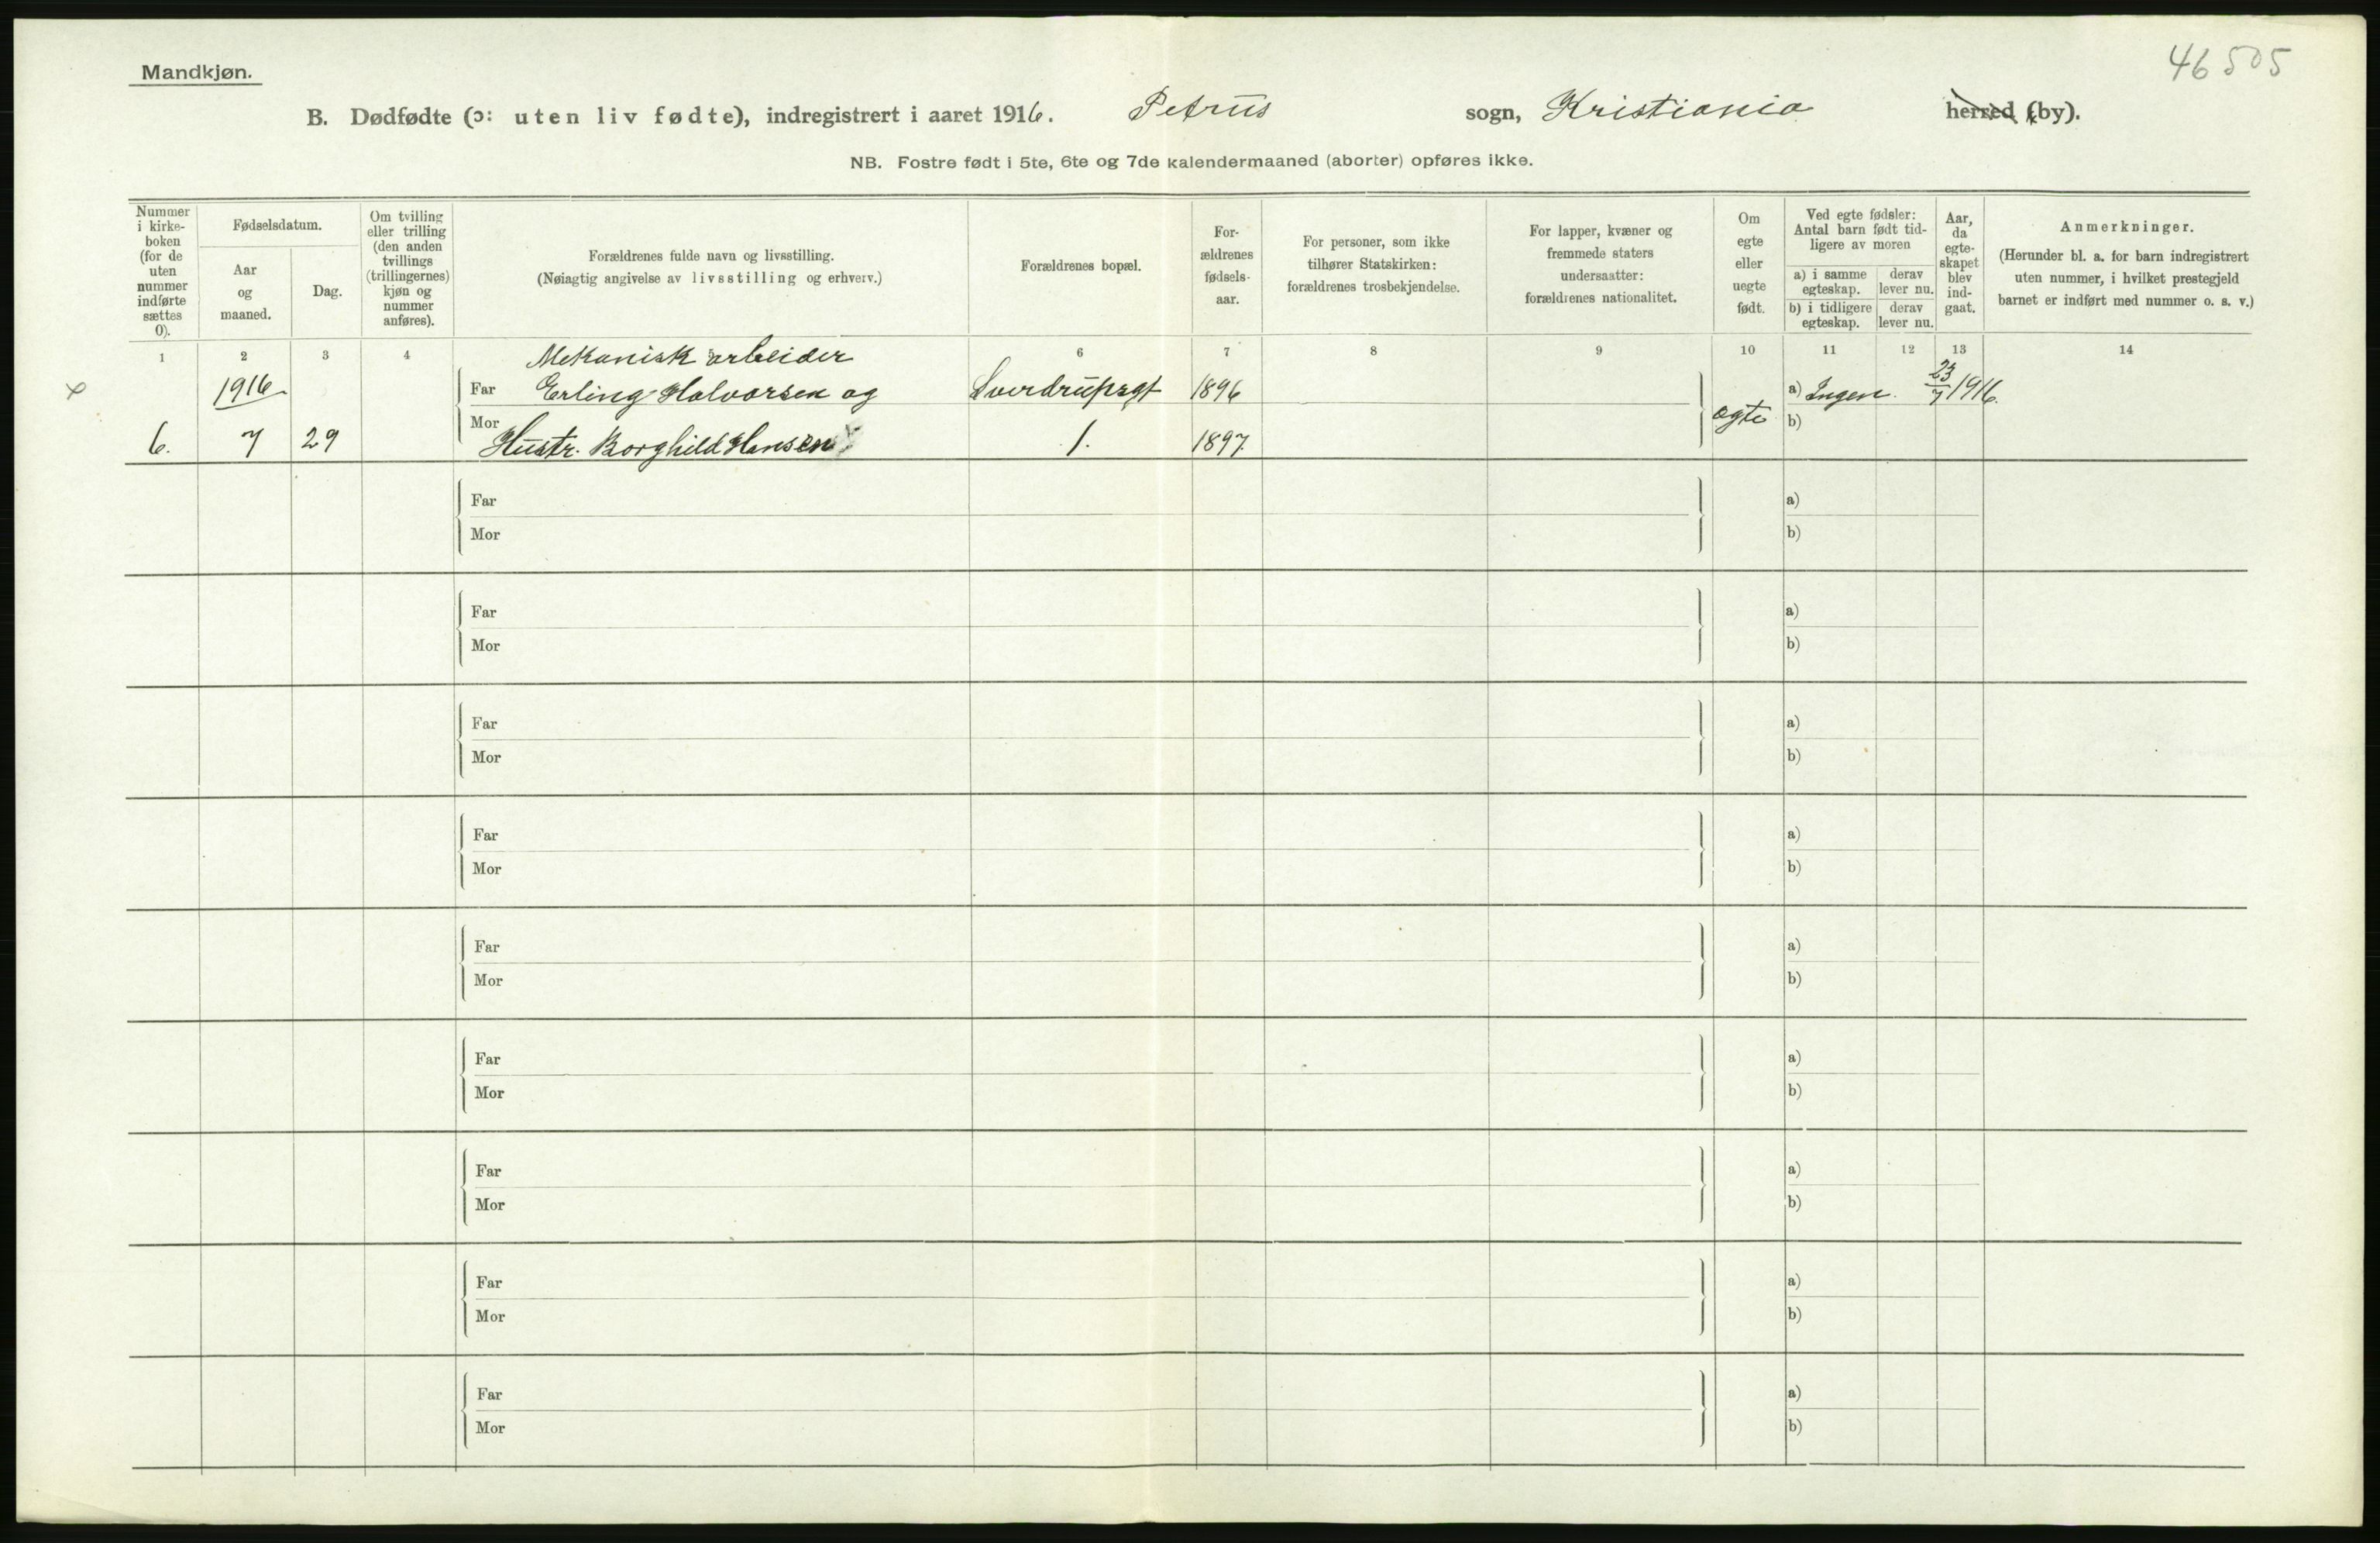 46505
Mandkjøn.
B. Dødfødte (ɔ: uten liv fødte), indregistrert i aaret 1916. Petrus sogn, Kristiania herred (by).
NB. Fostre født i 5te, 6te og 7de kalendermaaned (aborter) opføres ikke.
Nummer
i kirke-
boken
(for de
uten
nummer
indførte
sættes
0).
Fødselsdatum.
Aar
og
maaned.
Dag.
Om tvilling
eller trilling
(den anden
tvillings
(trillingernes)
kjøn og
nummer
anføres).
Forældrenes fulde navn og livsstilling.
(Nøiagtig angivelse av livsstilling og erhverv.)
Forældrenes bopæl.
For-
ældrenes
fødsels-
aar.
For personer, som ikke
tilhører Statskirken:
forældrenes trosbekjendelse.
For lapper, kvæner og
fremmede staters
undersaatter:
forældrenes nationalitet.
Om
egte
eller
uegte
født.
Ved egte fødsler:
Antal barn født tid-
ligere av moren
a) i samme
egteskap.
derav
lever nu.
b) i tidligere
egteskap.
derav
lever nu.
Aar,
da
egte-
skapet
blev
ind-
gaat.
Anmerkninger.
(Herunder bl. a. for barn indregistrert
uten nummer, i hvilket prestegjeld
barnet er indført med nummer o. s. v.)
1 2 3 4 6 7 8 9 10 11 12 13 14
Mekanisk arbeider
1916 Far Erling Halvorsen og Sverdrupsgt 1896 a) Ingen. 23/7 1916.
Mor egte b)
6. 7 29 Hustr. Borghild Hansen 1. 1897.
Far a)
Mor b)
Far a)
Mor b)
Far a)
Mor b)
Far a)
Mor b)
Far a)
Mor b)
Far a)
Mor b)
Far a)
Mor b)
Far a)
Mor b)
Far a)
Mor b)